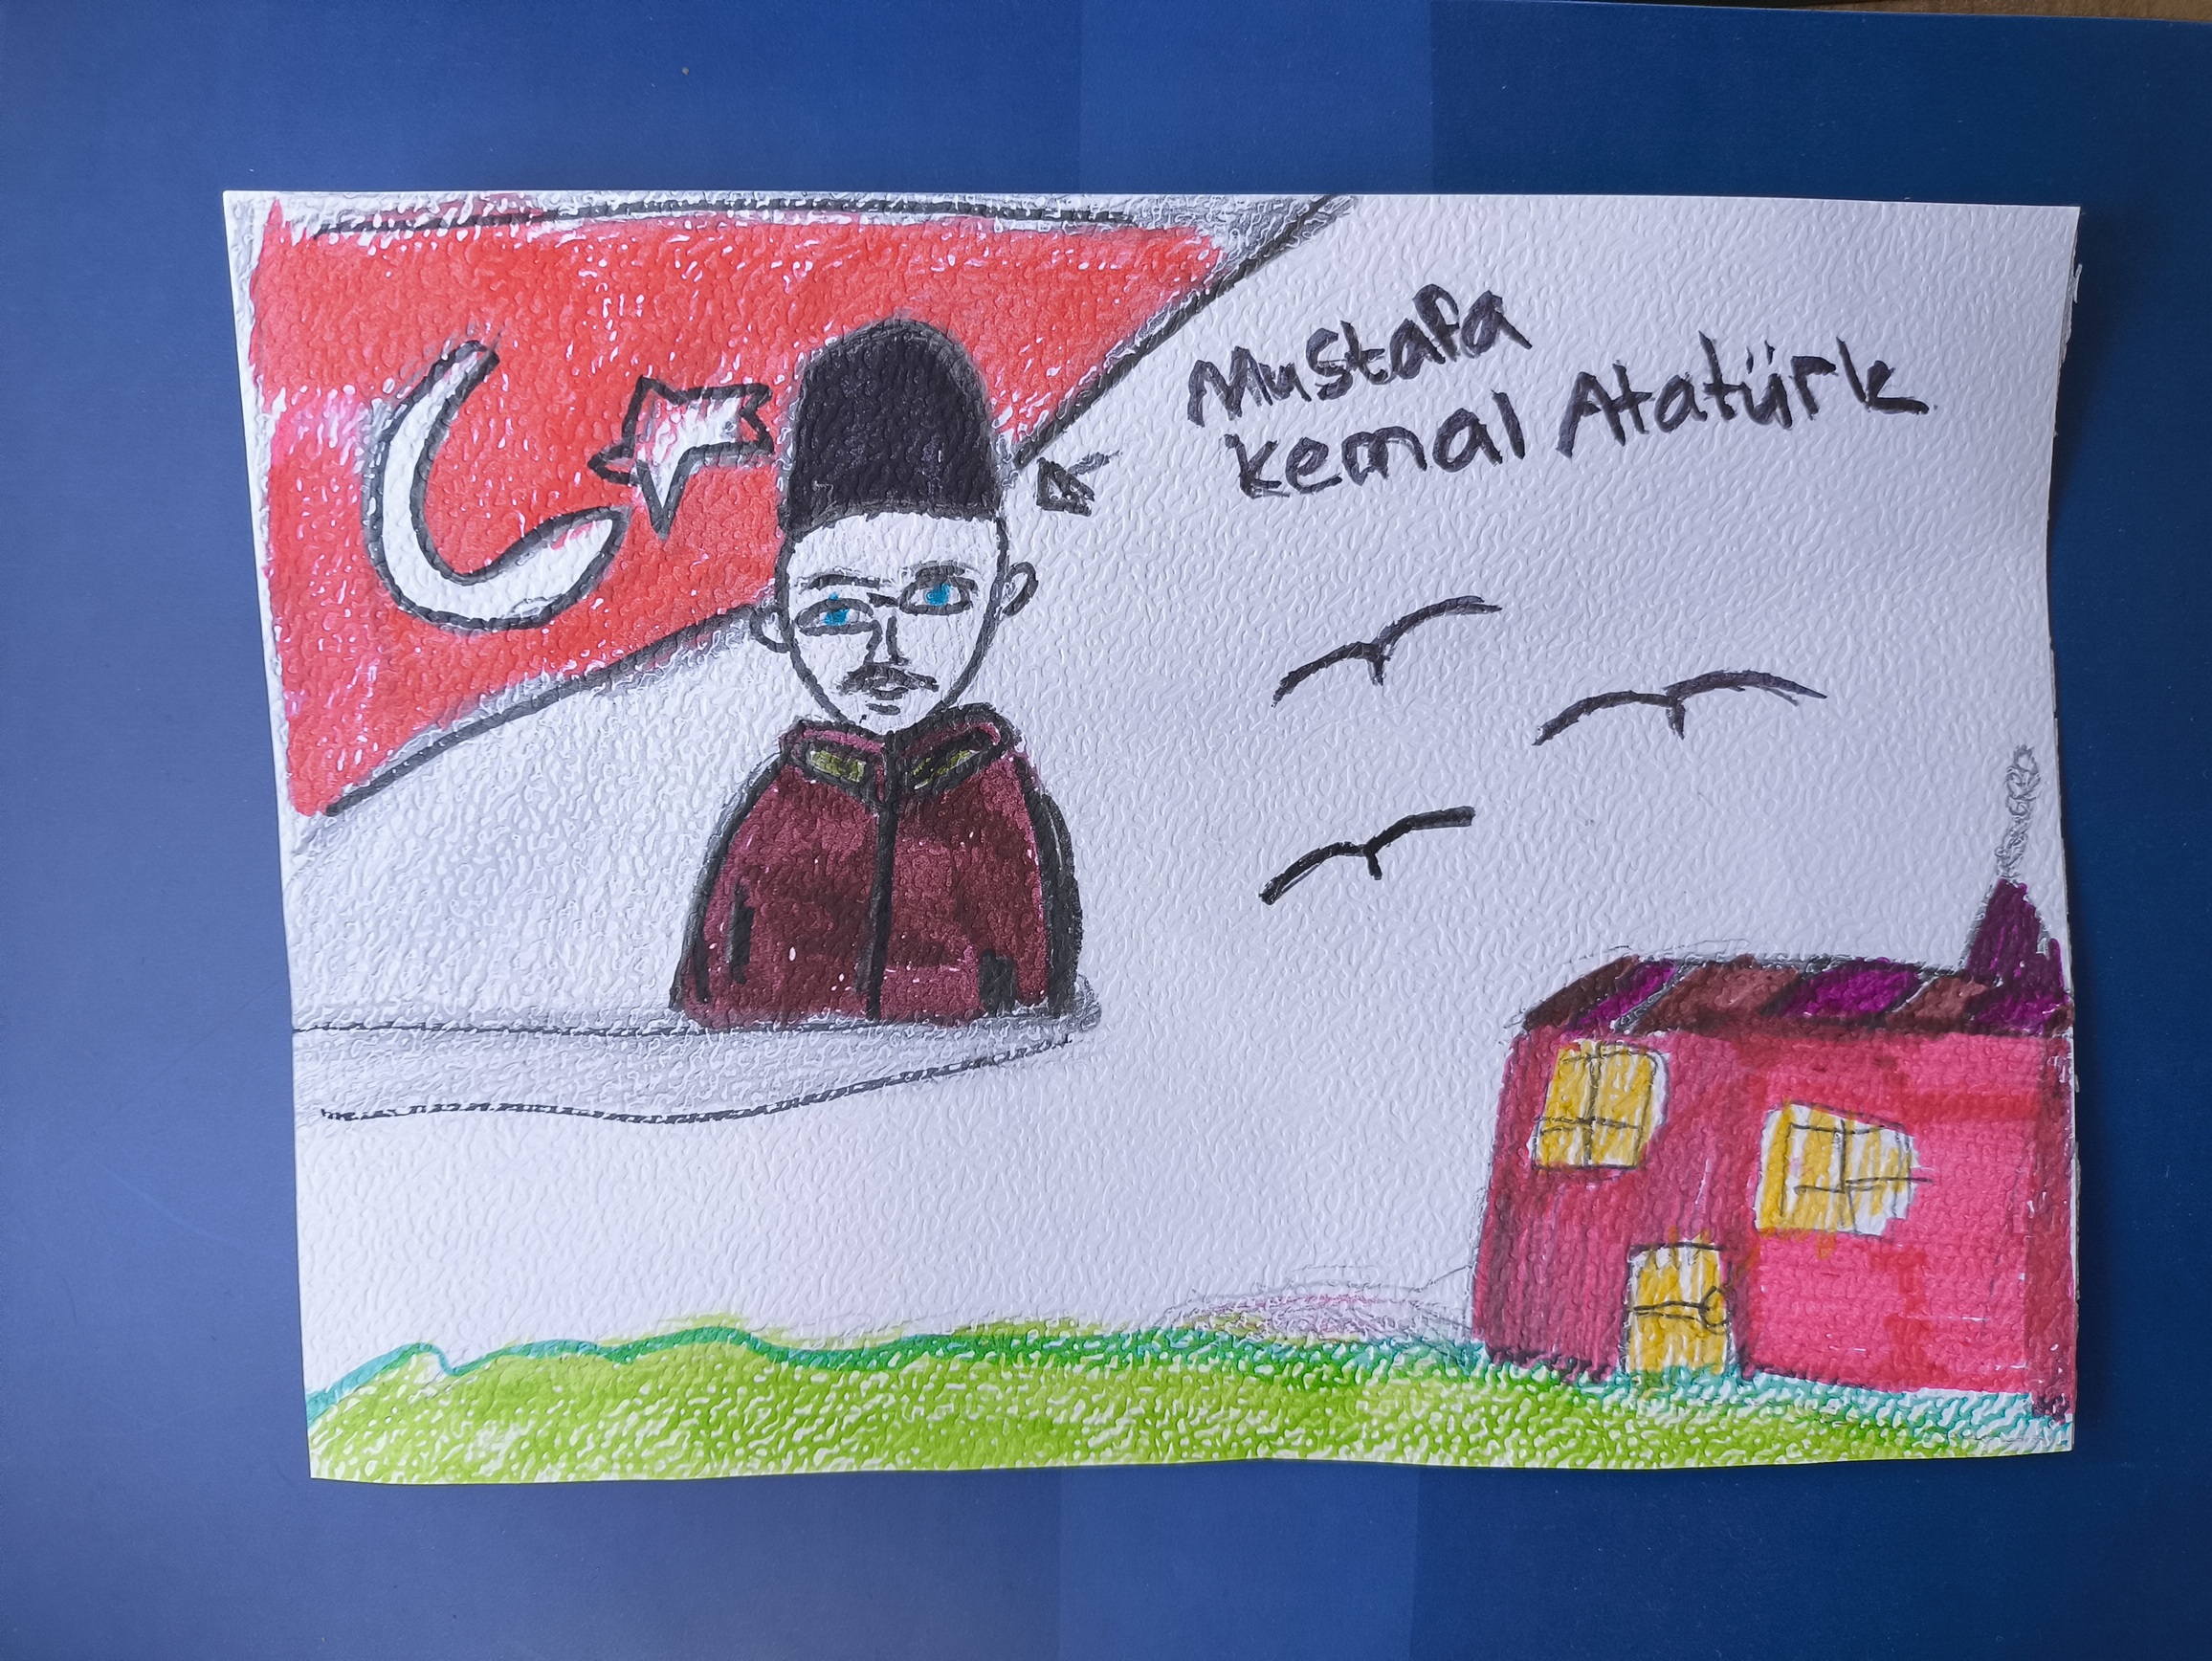 Mustafa
Kemal Atatürk